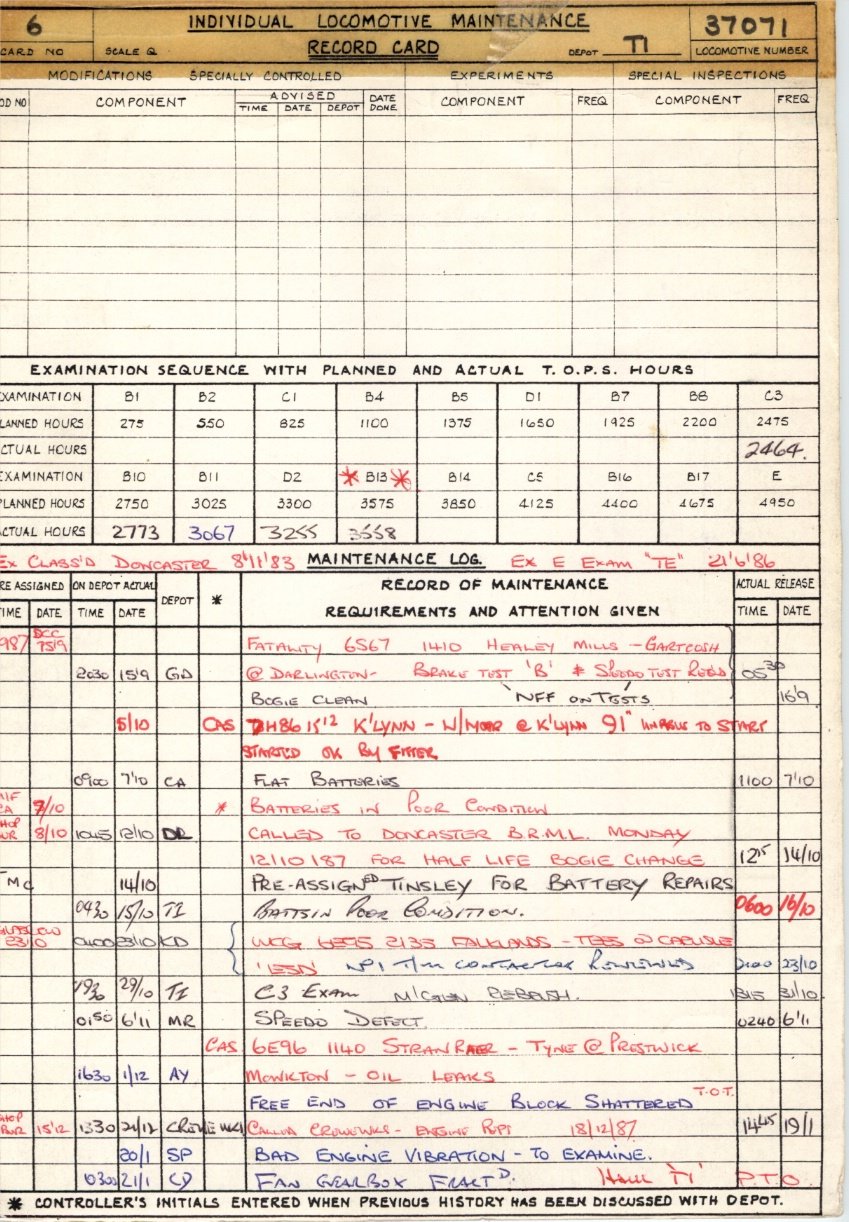 6 INDIVIDUAL LOCOMOTIVE MAINTENANCE 37071
CARD NO SCALE Q RECORD CARD DEPOT TI LOCOMOTIVE NUMBER
MODIFICATIONS SPECIALLY CONTROLLED EXPERIMENTS SPECIAL INSPECTIONS
OD NO COMPONENT ADVISED DATE DONE COMPONENT FREQ COMPONENT FREQ
TIME DATE DEPOT
EXAMINATION SEQUENCE WITH PLANNED AND ACTUAL T.O.P.S. HOURS
XAMINATION B1 B2 C1 B4 B5 D1 B7 B8 C3
LANNED HOURS 275 550 825 1100 1375 1650 1925 2200 2475
CTUAL HOURS 2464.
EXAMINATION B10 B11 D2 * B13 * B14 C5 B16 B17 E
PLANNED HOURS 2750 3025 3300 3575 3850 4125 4400 4675 4950
CTUAL HOURS 2773 3067 3255 3558
EX CLASS'D DONCASTER 8'11'83 MAINTENANCE LOG. EX E EXAM "TE" 21'6'86
RE ASSIGNED ON DEPOT ACTUAL DEPOT * RECORD OF MAINTENANCE ACTUAL RELEASE
TIME DATE TIME DATE REQUIREMENTS AND ATTENTION GIVEN TIME DATE
987 FATALITY 6S67 1410 HEALEY MILLS - GARTCOSH
2030 15'9 GD @ DARLINGTON - BRAKE TEST 'B' & SPEEDO TEST REQD 0530
BOGIE CLEAN NFF ON TESTS 16'9
5/10 CAS 7H86 1512 K'LYNN - W/MOOR @ K'LYNN 91" UNABLE TO START
STARTED OK BY FITTER
0900 7'10 CA FLAT BATTERIES 1100 7'10
CA 7/10 * BATTERIES IN POOR CONDITION
8/10 1045 12/10 DR CALLED TO DONCASTER B.R.M.L. MONDAY
12/10/87 FOR HALF LIFE BOGIE CHANGE 1215 14/10
14/10 PRE-ASSIGNED TINSLEY FOR BATTERY REPAIRS
0430 15/10 TI BATTS IN POOR CONDITION. 0600 16/10
23/10 0400 23/10 KD 6E95 2135 FALKLANDS - TEES @ CARLISLE
NO1 T/M CONTACTOR RENEWED 2100 23/10
1930 29/10 TI C3 EXAM M'GEN REBRUSH. 1315 31/10
0150 6'11 MR SPEEDO DEFECT. 0240 6'11
CAS 6E96 1140 STRANRAER - TYNE @ PRESTWICK
1630 1/12 AY MONKTON - OIL LEAKS
FREE END OF ENGINE BLOCK SHATTERED T.O.T.
15'12 1330 21/12 CREWE WKS CALLED CREWE WKS - ENGINE RPS 18/12/87 1445 19/1
20/1 SP BAD ENGINE VIBRATION - TO EXAMINE.
0300 21/1 CD FAN GEARBOX FRACTD. HAUL 'TI' P.T.O.
* CONTROLLER'S INITIALS ENTERED WHEN PREVIOUS HISTORY HAS BEEN DISCUSSED WITH DEPOT.